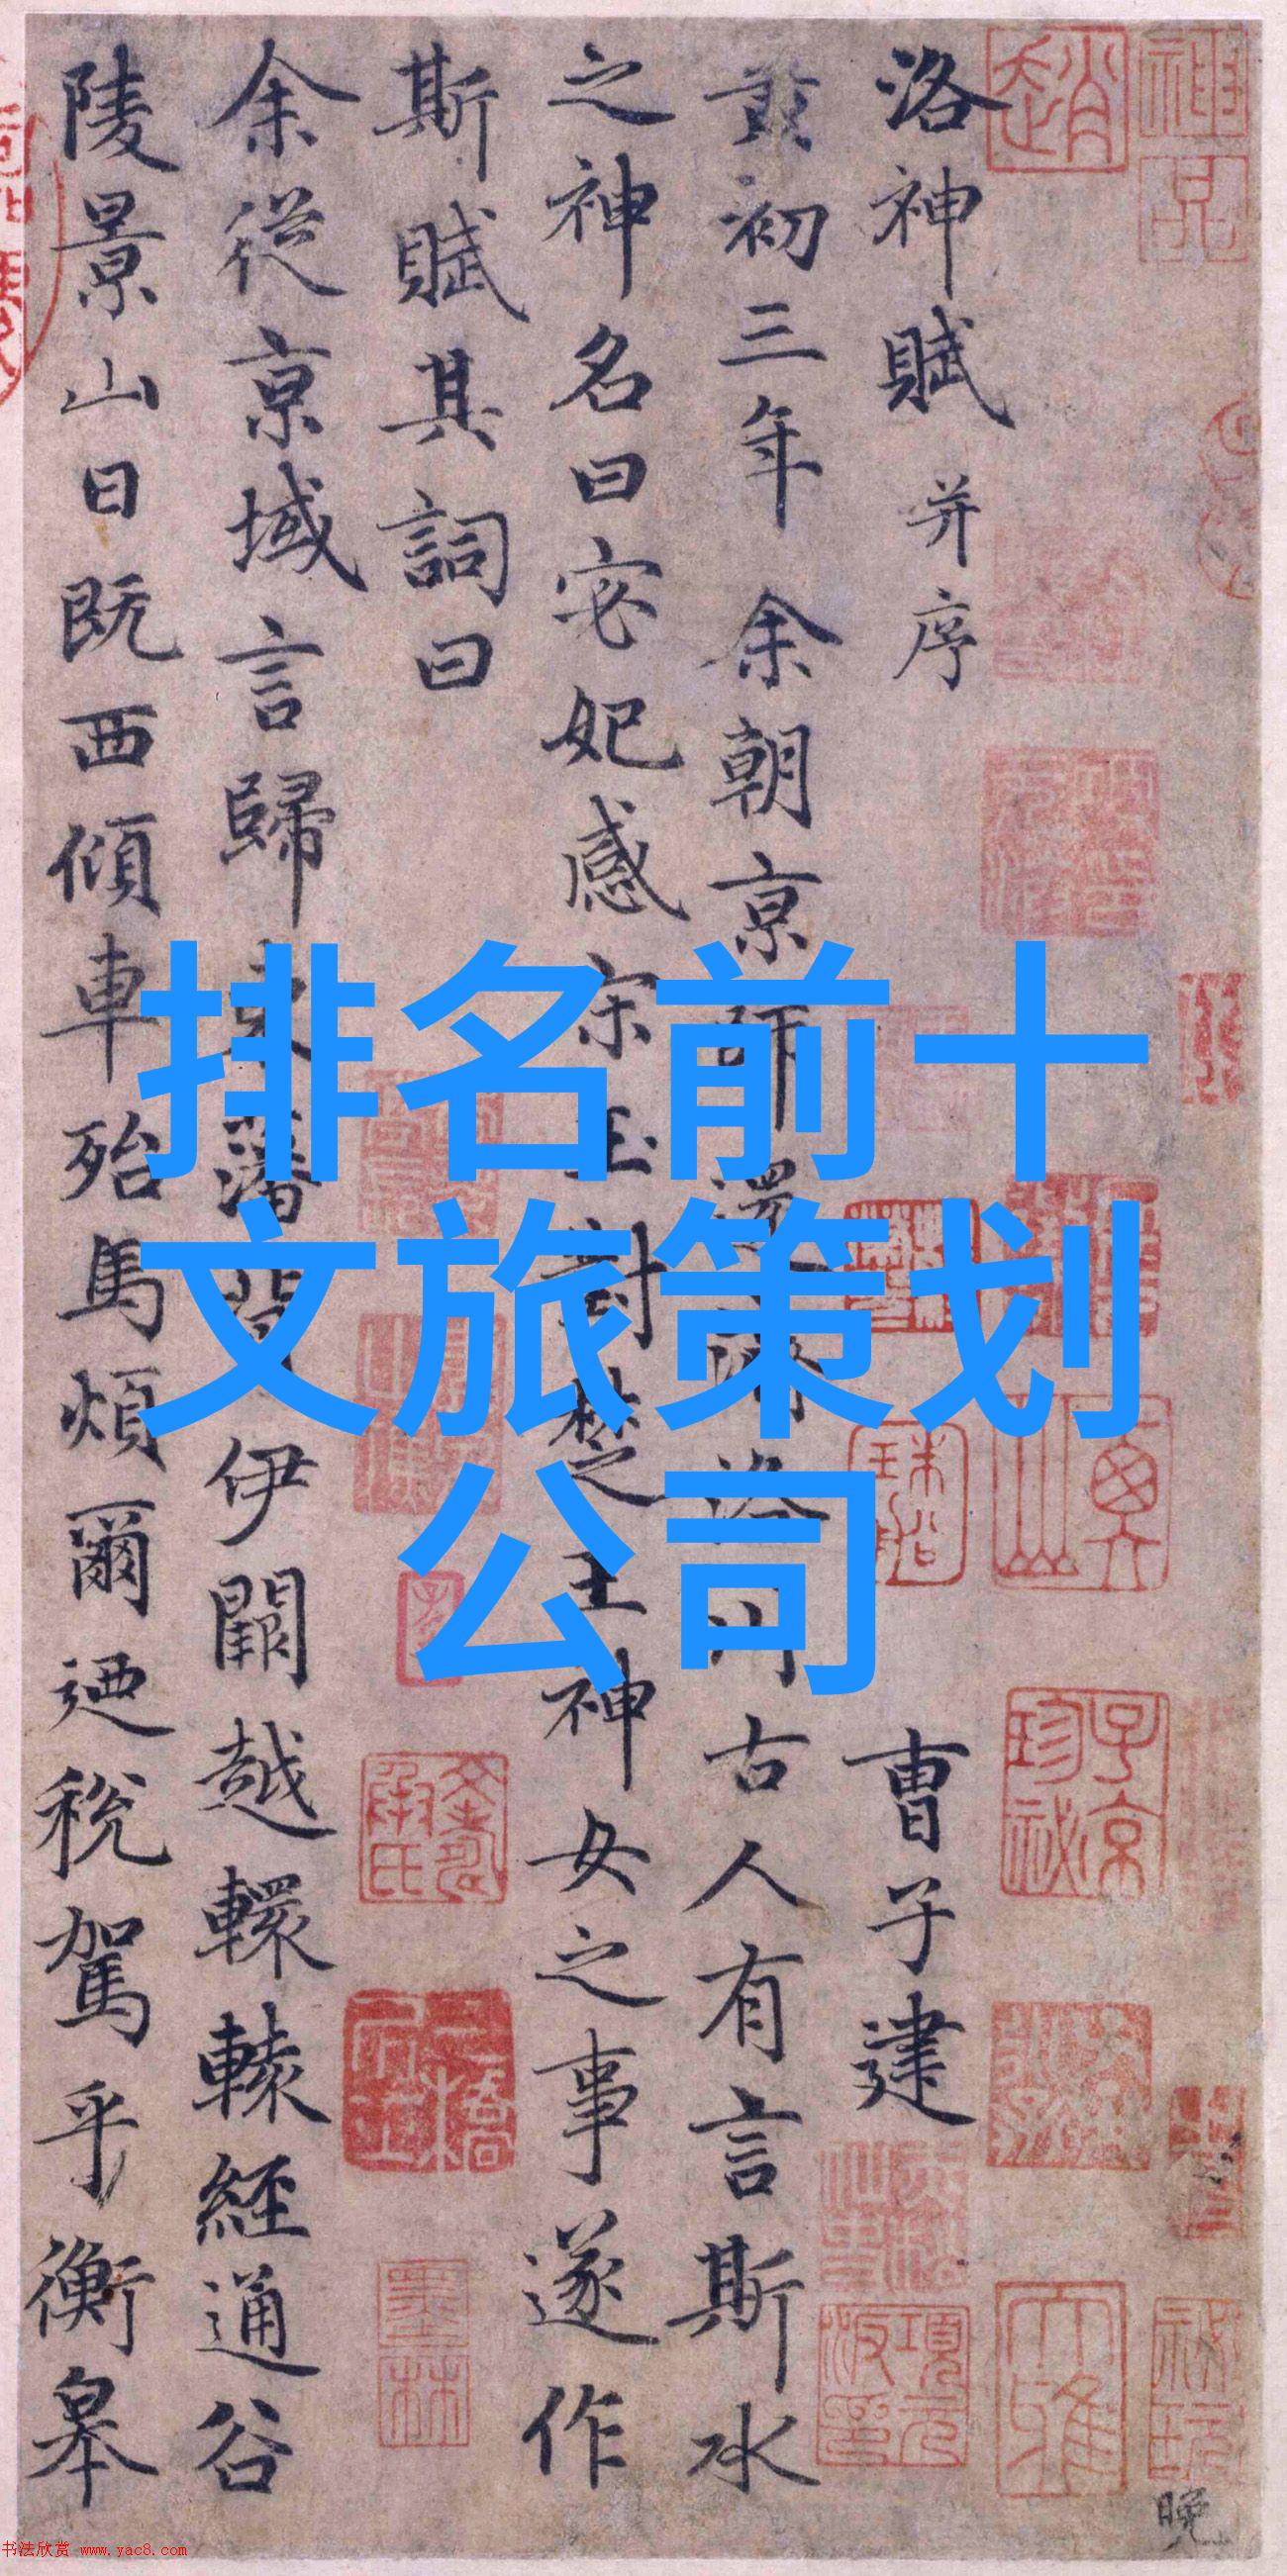 洛神賦 并序 曹子建
黃初三年余朝京師還濟洛川古人有言斯水
之神名曰宓妃感宋玉對楚之王神女之事遂作
斯賦其詞曰
余從京域言歸東藩背伊闕越轘轅經通谷
陵景山日既西傾車殆馬煩爾迺稅駕乎衡皋
排名前十
文旅策划
公司
神品
子京珍秘
項元汴印
墨林
晚
书法欣赏 www.yac8.com